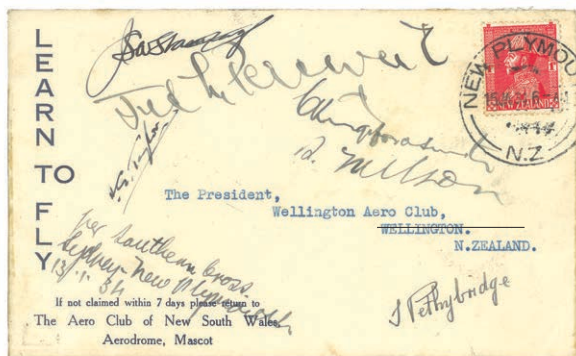 LEARN TO FLY
NEW PLYMOU
N.Z
NEW ZEALAND
The President,
Wellington Aero Club,
WELLINGTON.
N.ZEALAND.
per Southern Cross.
Sydney - New Plymouth
13/1/34
J Pethybridge
If not claimed within 7 days please return to
The Aero Club of New South Wales,
Aerodrome, Mascot